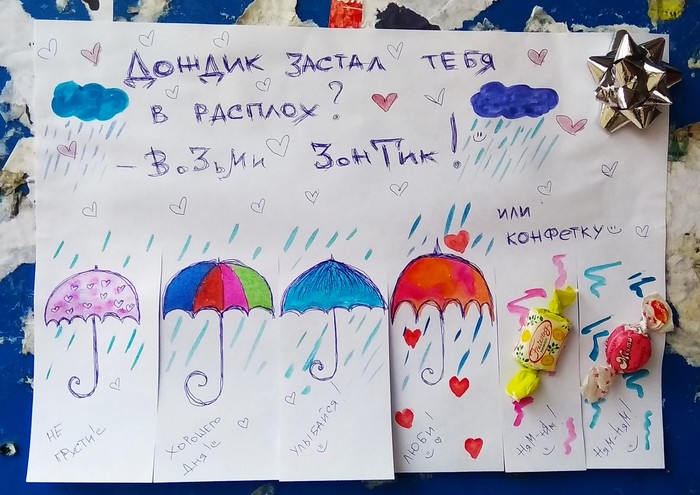 Дождик застал тебя
в расплох?
– Возьми зонтик!
или
конфетку
не
грусти!
хорошего
дня!
улыбайся!
люби!
ням-ням!
ням-ням!